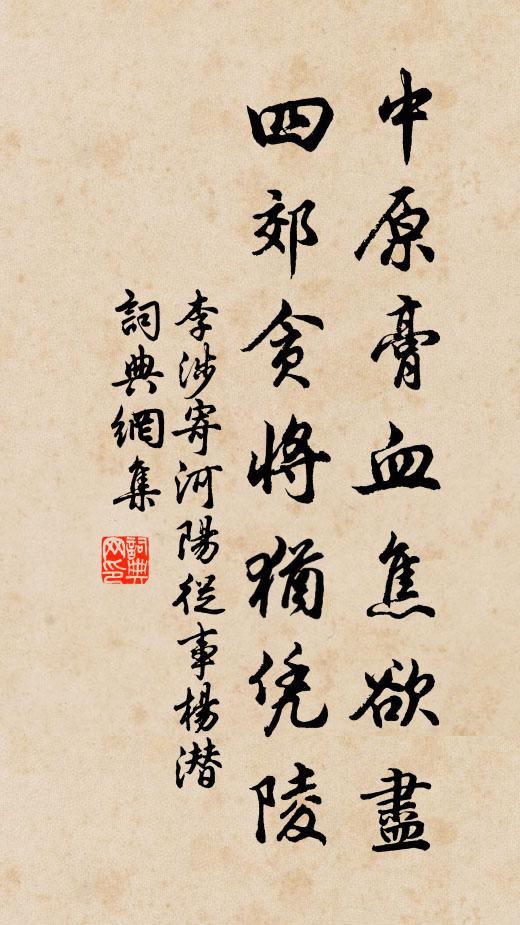 中原膏血焦欲盡
四郊貪將猶凭陵
李涉寄河陽從事楊潛
詞典網集
詞典网印